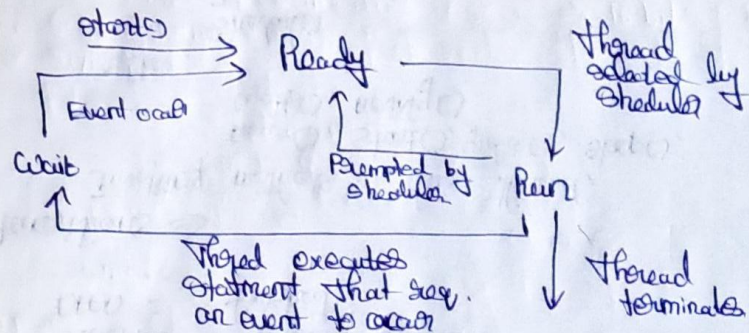 start()
Ready
Thread
selected by
Sheduler
Event occur
Wait
Prempted by
Sheduler
Run
Thread executes
Statment that req.
an event to occur
Thread
terminates